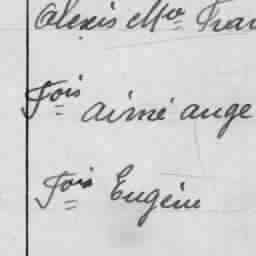 Alexis Mie Fran
Fois aimé ange
Fois Eugène